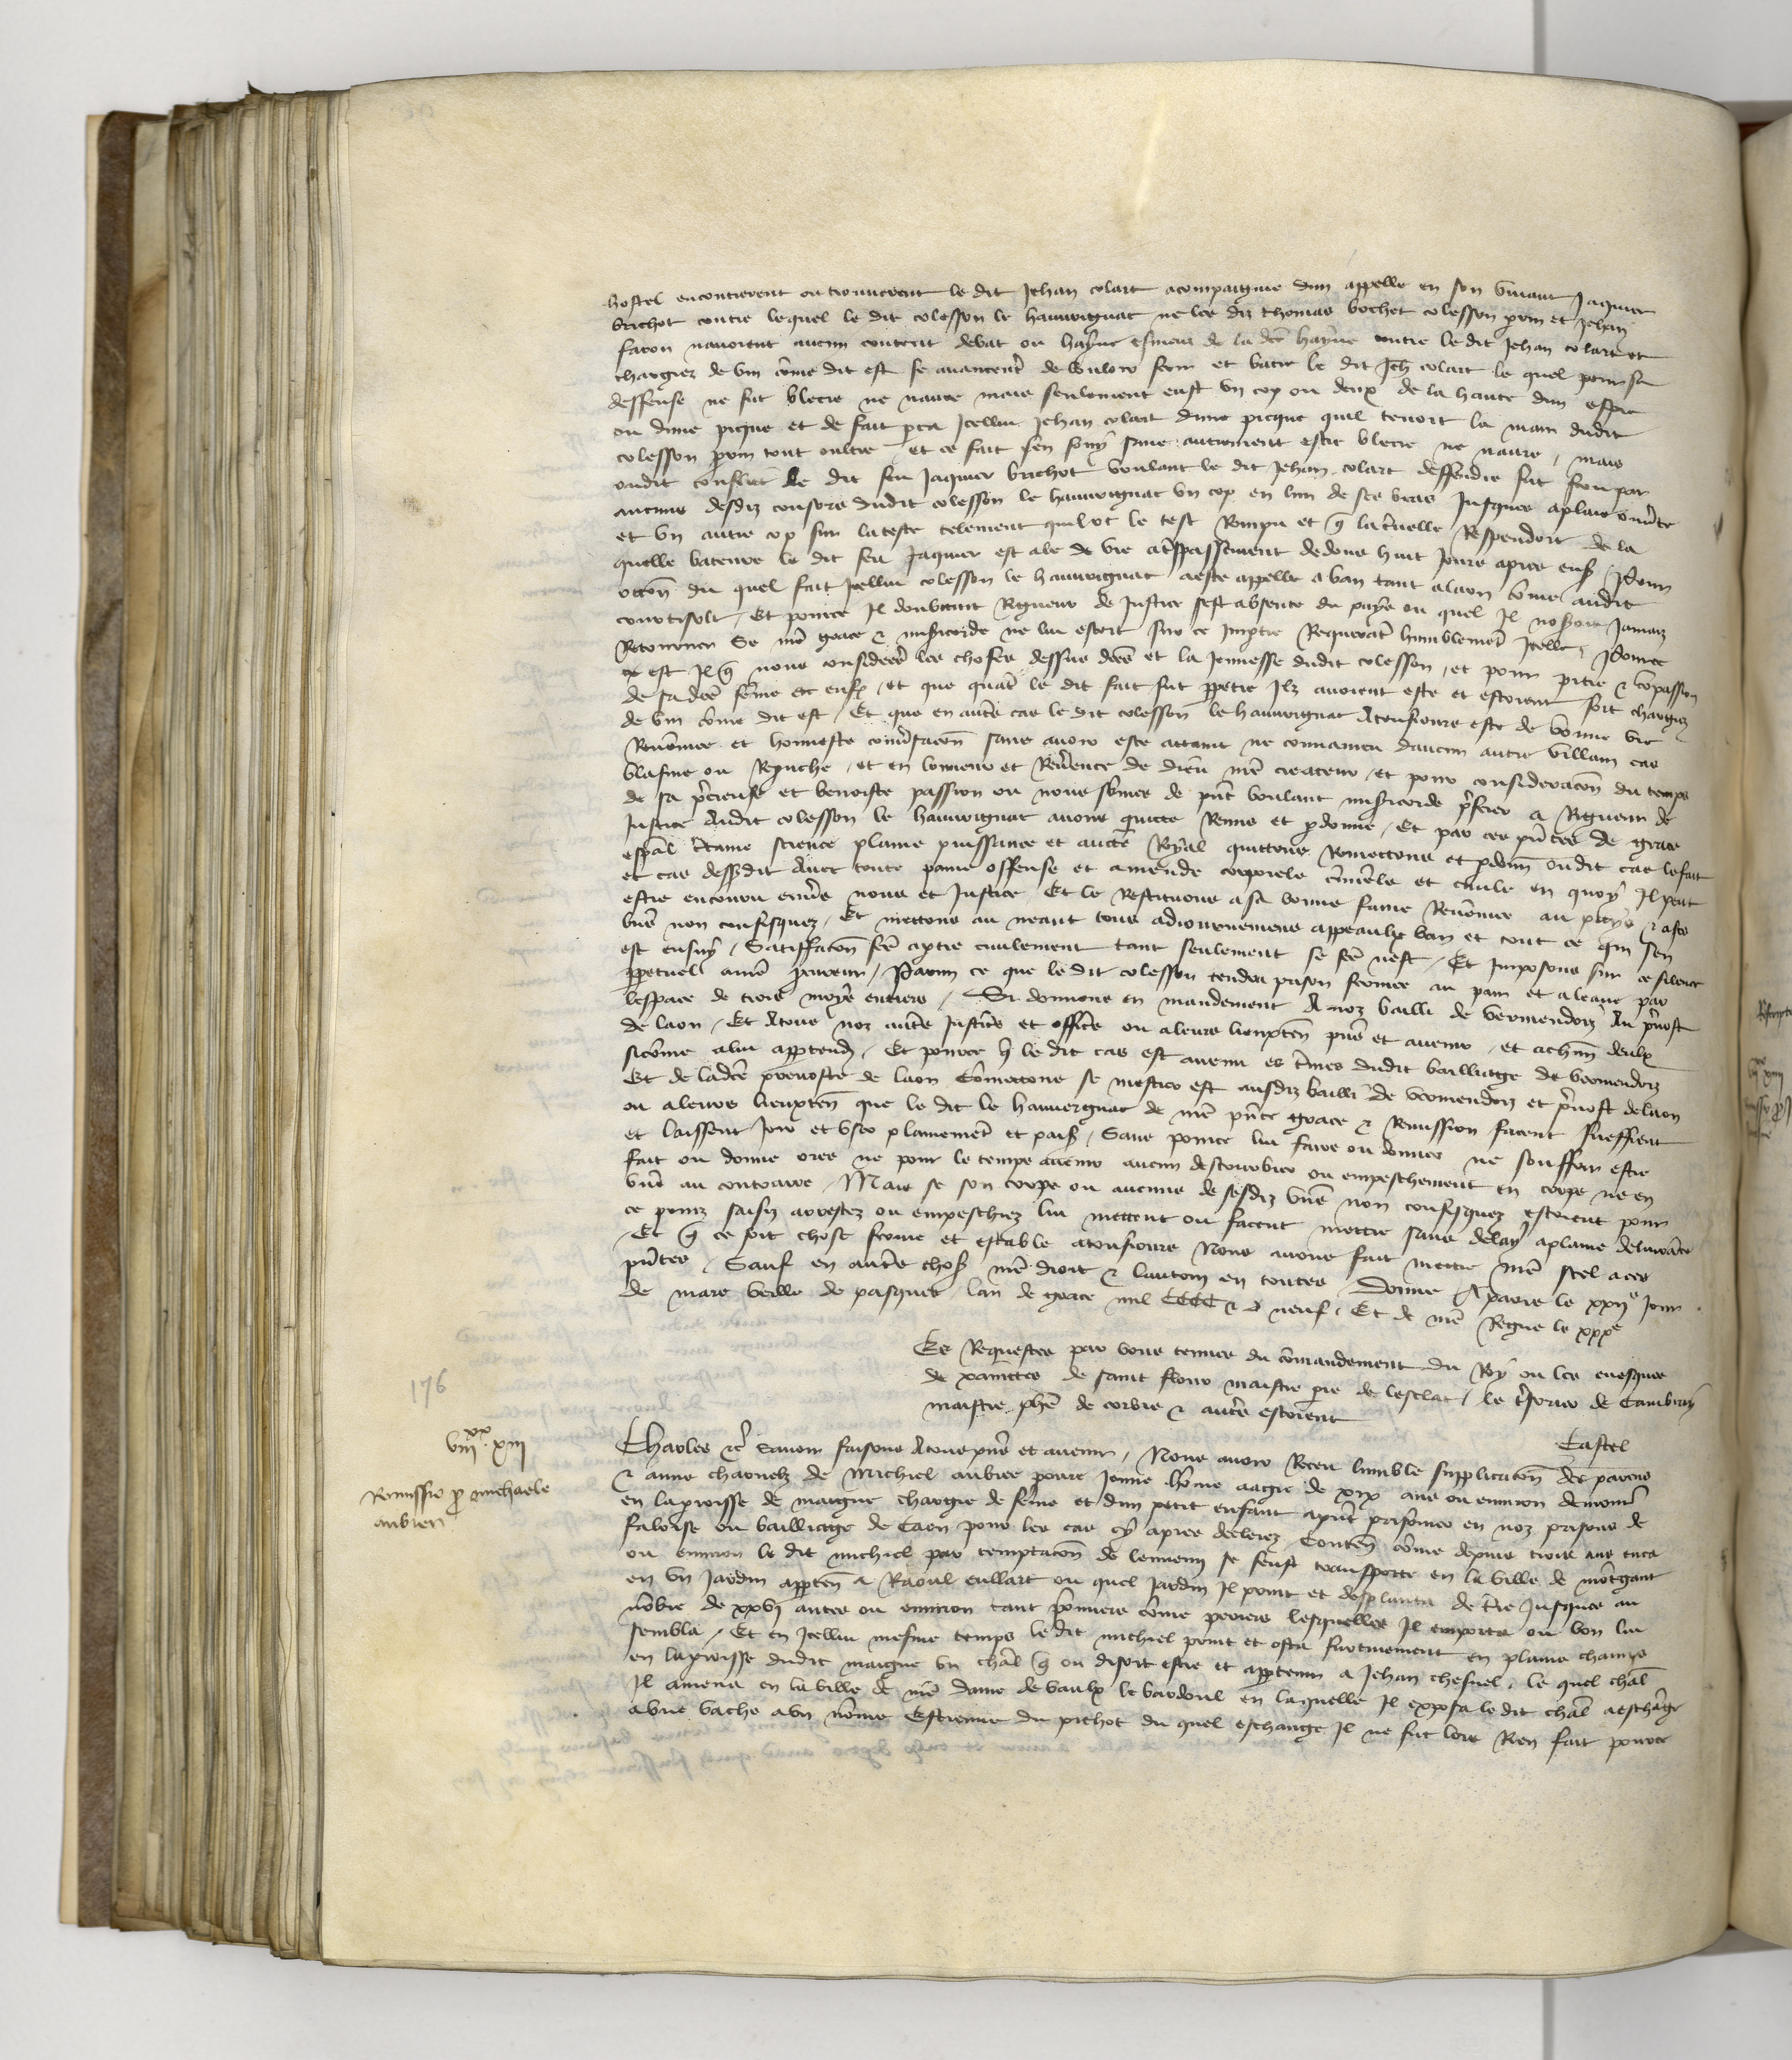 hostel encontrerent ou trouverent le dit Jehan colart acompaignie dun appelle en son vivant Jaquier
brichot contre lequel le dit colesson le hauvrignat ne les diz thomas bochet colesson prom et Jehan
facon navoient aucun content debat ou hayne esmeuz de la dce hayne contre le dit Jehan colart et
chargiez de vin cõme dit est se avancerẽt de vouloir ferir et batre le dit Jeh colart le quel pour sa
deffense ne fut blecie ne navre mais seulement eust un cop ou deux de la hante dun espie
ou dune picque et de fait perca Jcellui Jehan colart dune picque quil tenoit la main dudit
colesson prom tout oultre et ce fait sen fouy sans autrement estre blecie ne navre / mais
oudit conflict le dit feu Jaquier brichot voulant le dit Jehan colart deffendre fut feru par
aucuns desdiz consors dudit colesson le hauvrignat un cop en lun de ses bras Jusques a plaie ouvte
et un autre cop sur la teste telement quil ot le test Rompu et q̃ la cervelle Respendoit de la
quelle bateure le dit feu Jaquier est ale de vie a trespassement dedens huit Jours apres ens
occon du quel fait Jcellui colesson le hauvrignat a este appelle a ban tant a laon cõme audit
 Et pource Jl doubtant Rigueur de Justice sest absente du pays ou quel Jl noseroit Jamaiz
Retourner se nre grace & misericorde ne lui estoit sur ce Jmptie Requerãt humblemẽt Jcelle
 est Jl q̃ nous considere les choses dessus dces et la Jeunesse dudit colesson / et pour pitie & cõpassion
de sa dce feme et enfs / et que quãt le dit fait fut ppetre Jlz avoient este et estoient fort chargiez
de vin cõme dit est / Et que en autres cas le dit colesson le hauvrignat a tousiours este de bonne vie
Renõmee et honneste conversacon sans avoir este attaint ne convaincu daucun autre villain cas
blasme ou Reprouche / et en lonneur et Revence de dieu nre createur / et pour consideracon du temps
de sa precieuse et benoiste passion ou nous sõmes de pñt voulant misericorde pferer a Rigueur de
Justice Audit colesson le hauvrignat avons quicte Remis et pdonne / Et par ces pñtes de grace
espal ctaine science plaine puissance et aucte Royal quittons Remettons et pdonn oudit cas le fait
et cas dessusdit Avec toute paine offense et amende corporele cimele et civile en quoy Jl peut
estre encouru envs nous et Justice Et le Restituons a sa bonne fame Renõmee au pays & a ses
biens non confisquez / Et mettons au neant tous adiournemens appeaulx ban et tout ce qui sen
est ensuy / Satiffacon fce a ptie civilement tant seulement se fce nest / Et Jmposons sur ce silence
ppetuel a nre procureur / Parmi ce que le dit colesson tendra prison fermee au pain et a leaue par
lespace de trois moys entiers / Si donnons en mandement A noz bailli de vermendoiz Au prevost
de laon / Et A tous noz autres Justices et offices ou a leurs lieuxten pñs et avenir / et a chm deulx
sicõme a lui apptendra / Et pource q̃ le dit cas est avenu es tmes dudit bailliage de vermendoiz
Et de ladce prevoste de laon Cõmettons se mestier est ausdiz bailli de vermendoiz et prevost de laon
ou a leurs lieuxten que le dit le hauvergnat de nre pñte grace & Remission facent sueffrent
et laissent Joir et user plainemẽt et paisib / Sans pource lui faire ou donner ne souffrir estre
fait ou donne ores ne pour le temps avenir aucun destourbier ou empeschement en corps ne en
biens au contraire / Mais se son corps ou aucuns de sesdiz biens non confisquez estoient pour
ce prins saisiz arrestez ou empeschiez lui mettent ou facent mettre sans delay a plaine delivrace
Et q̃ ce soit chose ferme et estable a tousiours Nous avons fait mettre nre scel a ces
pñtes / Sauf en autres choses nre droit & lautruy en toutes / Donne A paris le xxii e Jour
de mars veille de pasques lan de grace mil CCCC & neuf / Et de nre Regne le xxx e
Es Requestes par vous tenues du cõmandement du Roy ou les evesques
de xainctes de saint flour maistre pre de lesclat / le tsorier de Cambray
maistre phe de corbie & autres estoient
Castel
176
xx
viii . xiii
Remissio p michaele
aubren
Charles &c savoir faisons A tous pñs et avenir / Nous avoir Receu lumble supplicacon des parens
& amis charnelz de Michiel aubree povre Jeune hõme aagie de xix ans ou environ demourt
en la proisse de maigne chargie de feme et dun petit enfant a pñt prisonnier en noz prisons de
faloise ou bailliage de Caen pour les cas cy apres declerez / Conten cõme depuis trois ans enca
ou environ le dit michiel par temptacon de lennemy se feust transporte en la ville de mõtgant
en un Jardin apptẽn a Raoul eullart ou quel Jardin Jl print et desplanta de tre Jusques au
nõbre de xxvj antes ou environ tant põmiers cõme periers lesquelles Jl emporta ou bon lui
sembla / Et en Jcellui mesme temps le dit michiel print et osta furtivement en plains champs
en la proisse dudit maigne un chal q̃ on disoit estre et apptenir a Jehan chesnel / le quel chal
Jl amena en la ville de nre dame de vaulx le bardoul en laquelle Jl exposa le dit chal a eschange
a une vache a un nõme Estienne du pichot du quel eschange Jl ne fut lors Rien fait pource